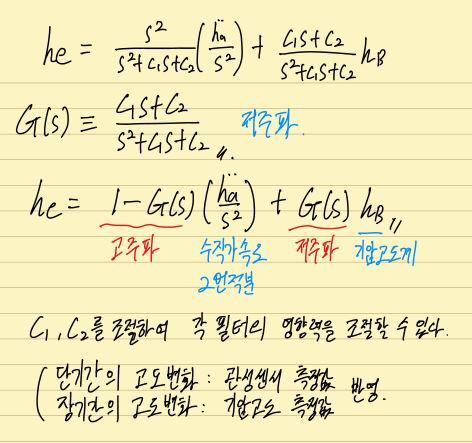 he = s²/(s²+c₁s+c₂) (ḧa/s²) + (c₁s+c₂)/(s²+c₁s+c₂) h_B
G(s) ≡ (c₁s+c₂)/(s²+c₁s+c₂) 저주파.
he = 1-G(s) (ḧa/s²) + G(s) h_B
고주파 수직가속도 저주파 기압고도계
2번적분
C₁, C₂를 조절하여 각 필터의 영향력을 조절할 수 있다.
단기간의 고도변화 : 관성센서 측정값 반영.
장기간의 고도변화 : 기압고도 측정값